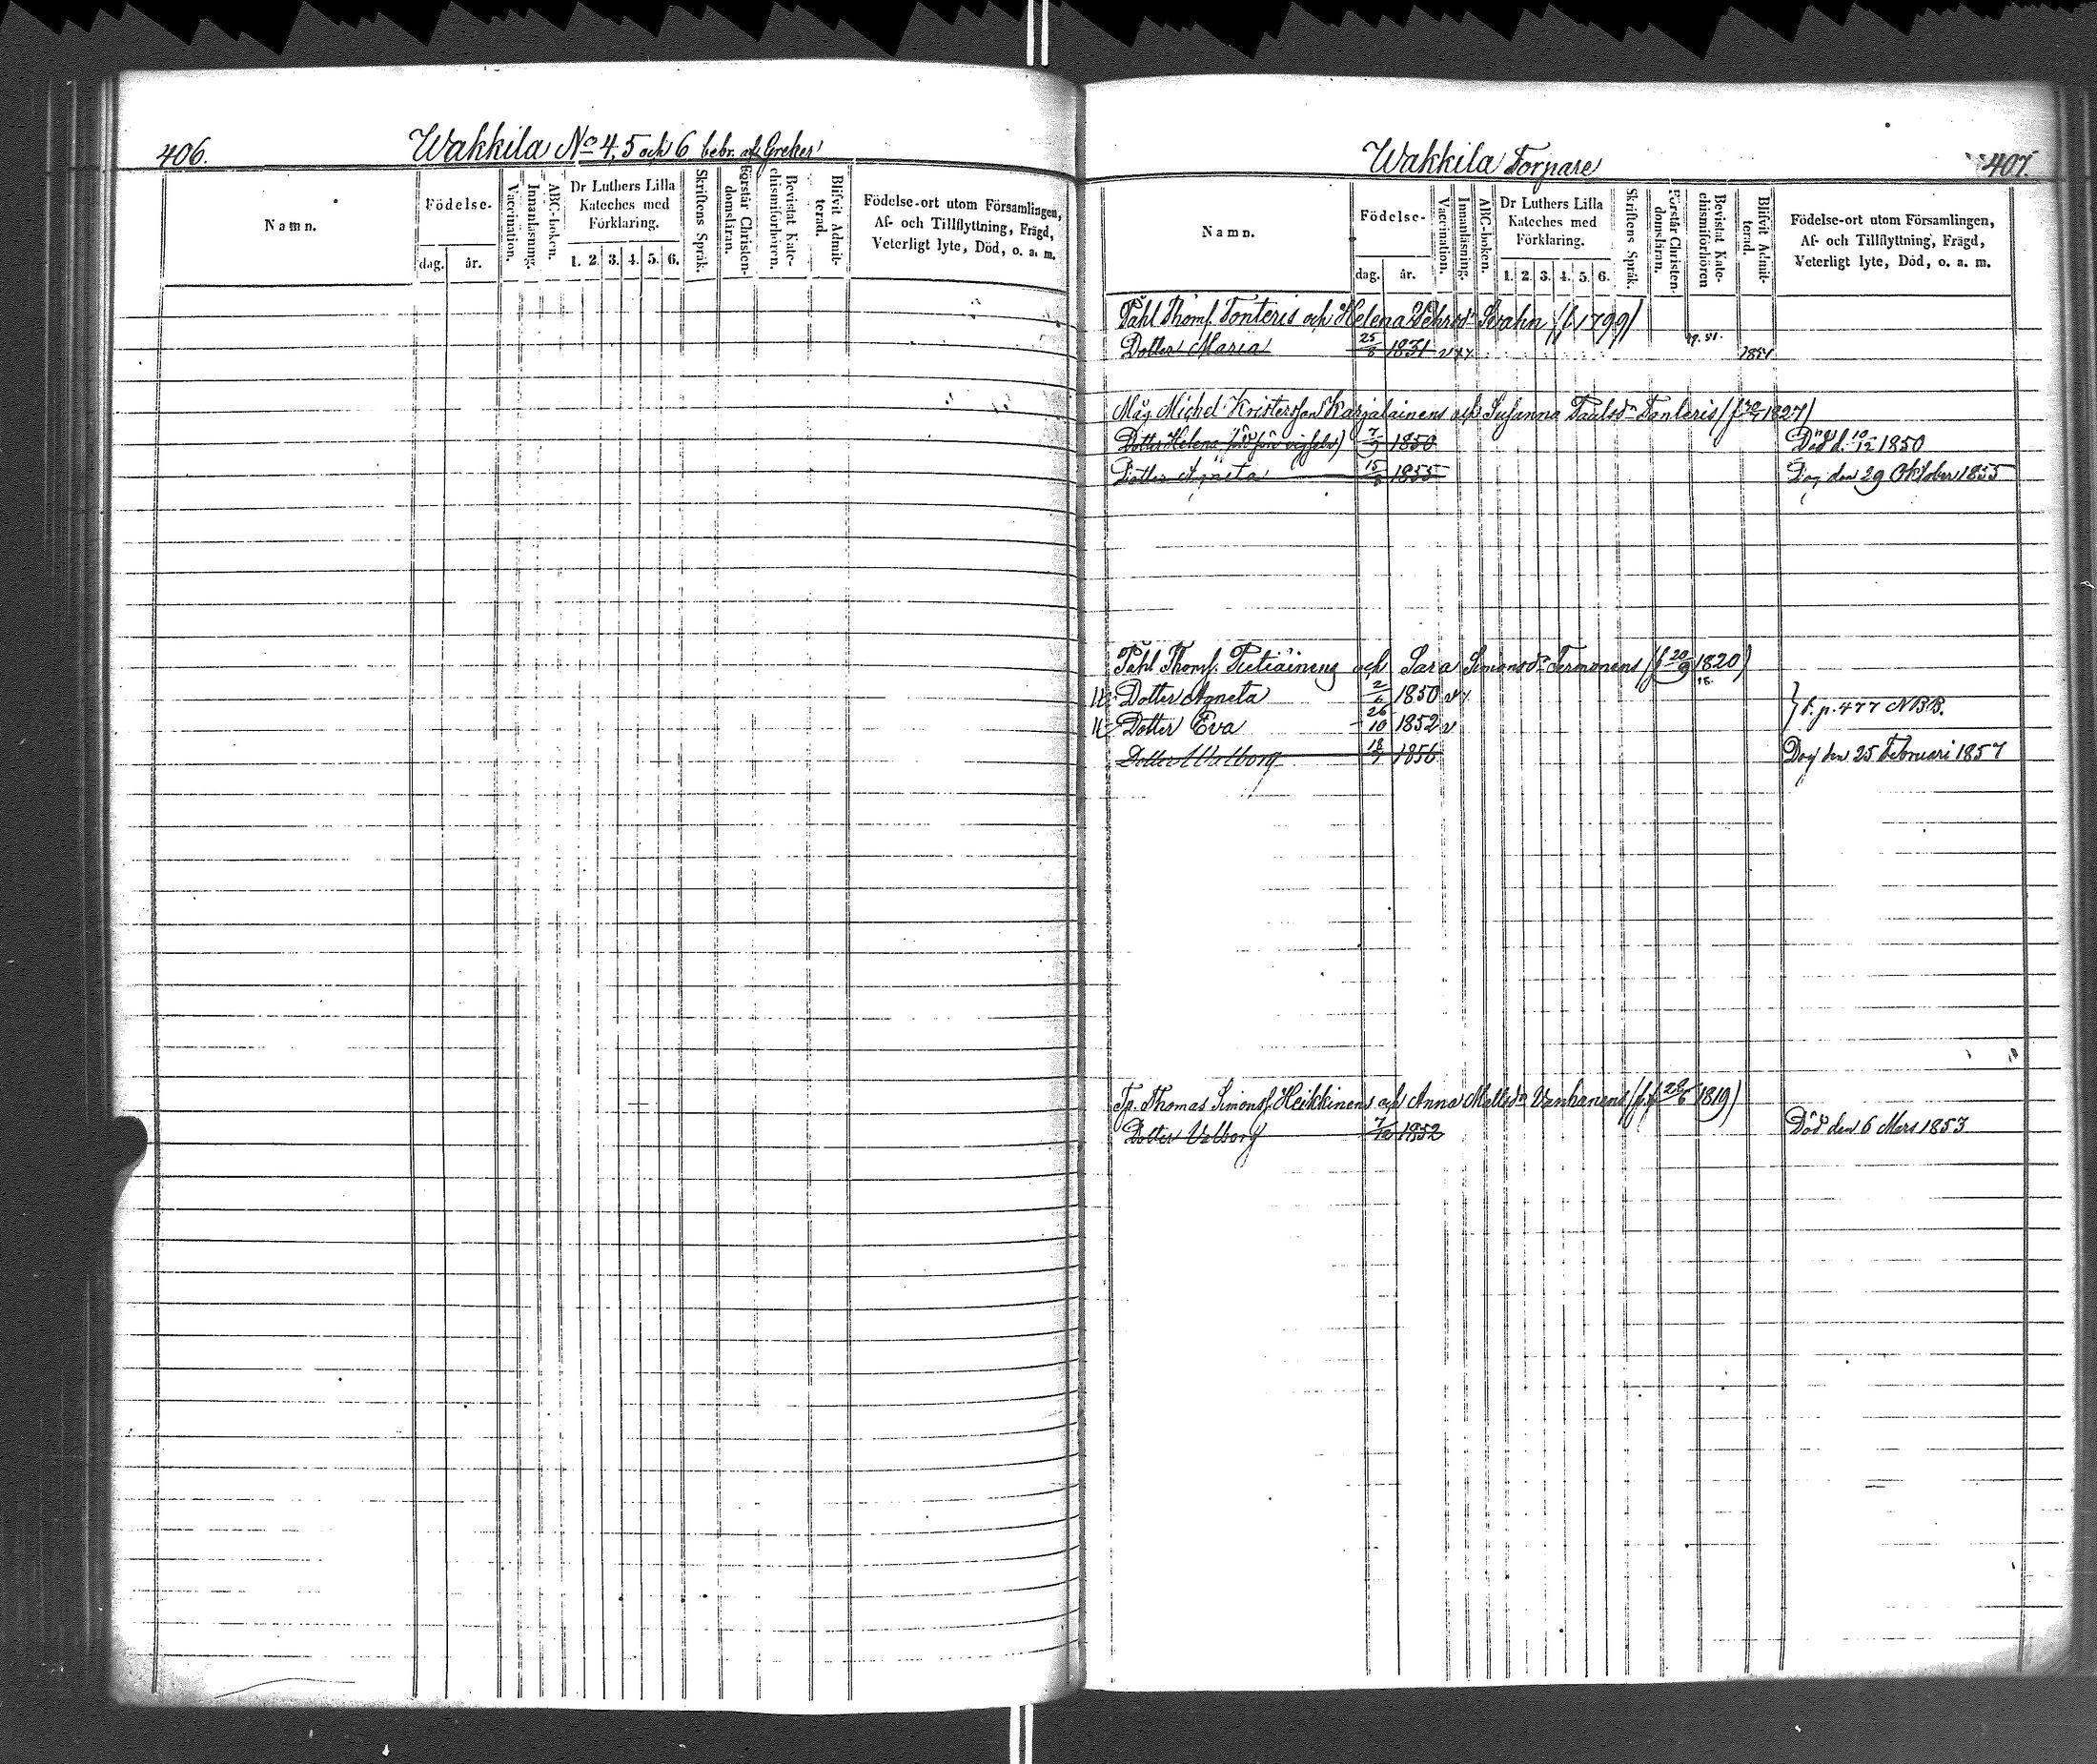 406.
Wakkila No 4, 5 och 6 bebr. af Greker
Namn.
Födelse-
dag. år.
Vaccination.
Innanläsning.
ABC-boken.
Dr Luthers Lilla
Kateches med
Förklaring.
1. 2. 3. 4. 5. 6.
Skriftens Språk.
Förstår Christen-
domsläran.
Bevistat Kate-
chismiförhören.
Blifvit Admit-
terad.
Födelse-ort utom Församlingen,
Af- och Tillflyttning, Frägd,
Veterligt lyte, Död, o. a. m.
Wakkila Torpare
407.
Namn.
Födelse-
dag. år.
Vaccination.
Innanläsning.
ABC-boken.
Dr Luthers Lilla
Kateches med
Förklaring.
1. 2. 3. 4. 5. 6.
Skriftens Språk.
Förstår Christen-
domsläran.
Bevistat Kate-
chismiförhören
Blifvit Admit-
terad.
Födelse-ort utom Församlingen,
Af- och Tillflyttning, Frägd,
Veterligt lyte, Död, o. a. m.
Påhl Thomſ. Tonteris och Helena Svahn (f. 1799)
Dotter Maria 25/8 1831 v x x 49. 51. 1851
Måg Michel Kristersson Karjalainen och Susanna Paulsdr Tonteris (f 1827)
Dotter Helena 7/9 1850 Död d. 10/12 1850
Dotter Agneta 15/8 1855 Dog den 29 Oktober 1855
Påhl Thomſ. och Sara Simonsdr (f 20/9 1820)
Dotter Agneta 2/6 1850 v x 18.
Dotter Eva 26/10 1852 v } t. p. 477 NBB.
Dotter Walborg 18/7 1856 Dog den 25 Februari 1857
Tp. Thomas Simonsſ. Heikkinen och Anna Vanhanen (f. 28/6 1819)
Dotter Valborg 7/10 1852 Död den 6 Mars 1853